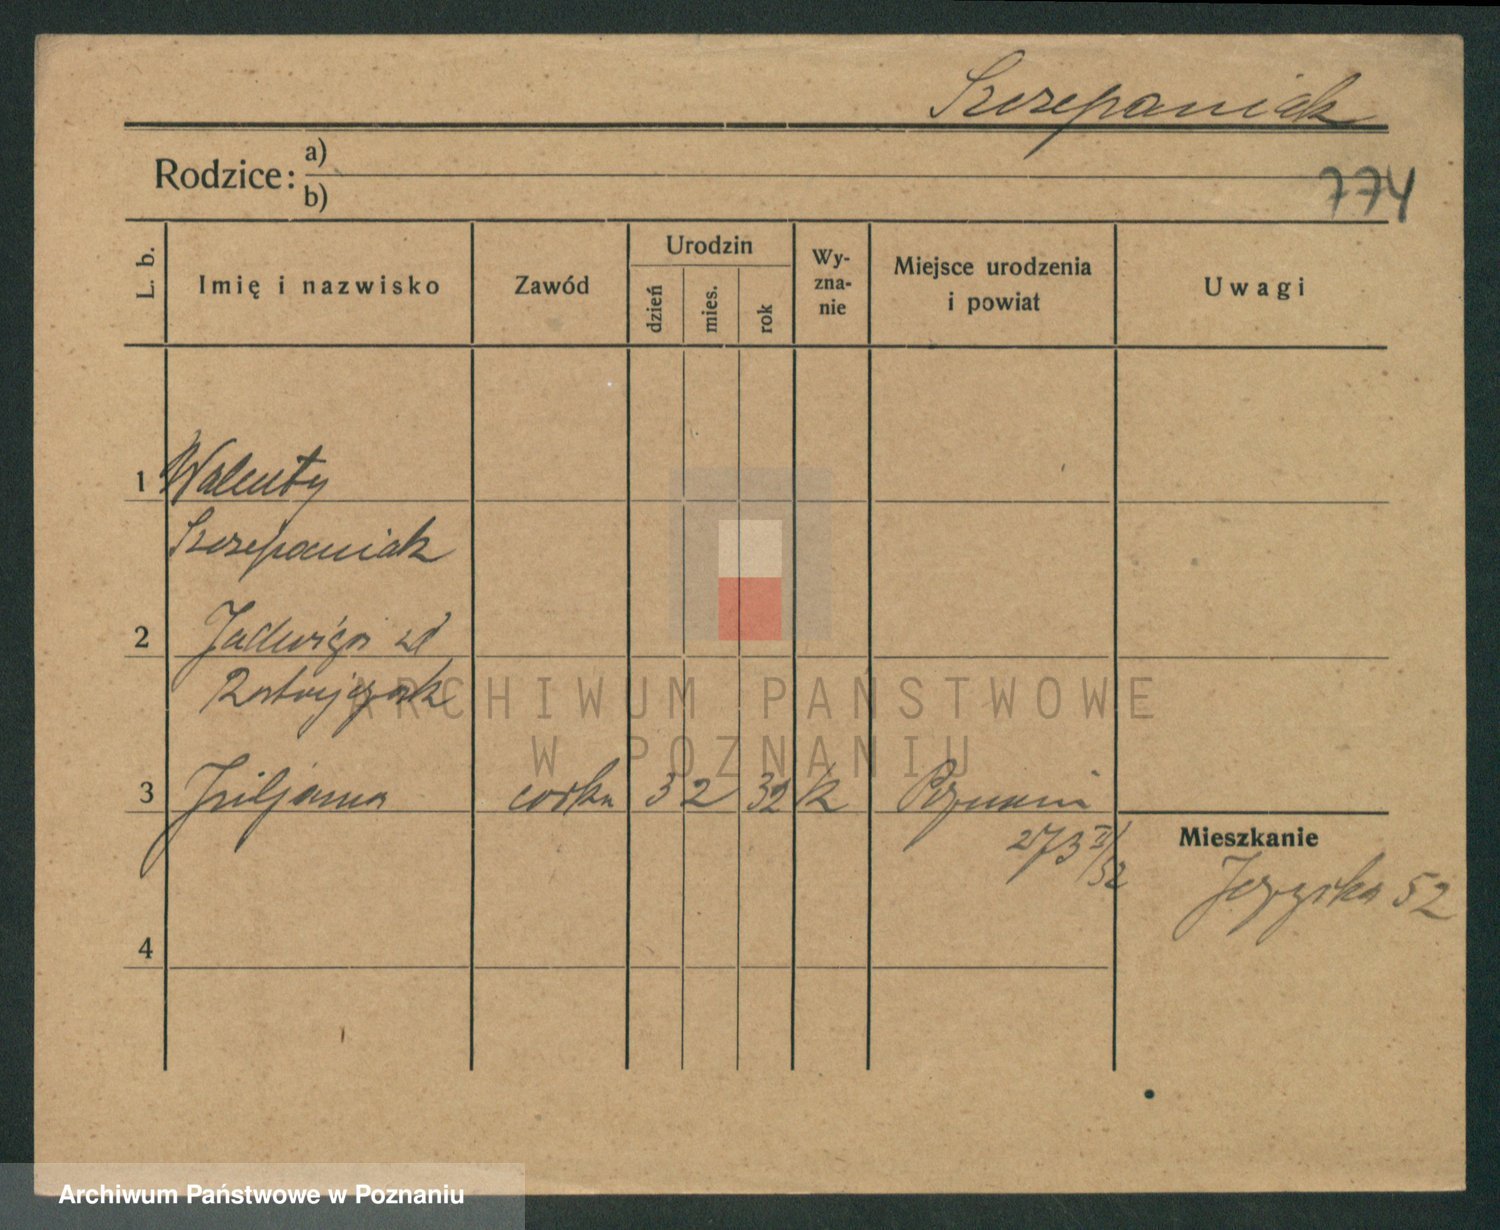 Szczepaniak
Rodzice: a)
b)
774
L. b.
Imię i nazwisko
Zawód
Urodzin
dzień
mies.
rok
Wy-
zna-
nie
Miejsce urodzenia
i powiat
Uwagi
1 Walenty
Szczepaniak
2 Jadwiga zd
3 Juljanna córka 3 2 32 k Poznań
273 II/32
Mieszkanie
Jeżycka 52
4
ARCHIWUM PAŃSTWOWE
W POZNANIU
Archiwum Państwowe w Poznaniu